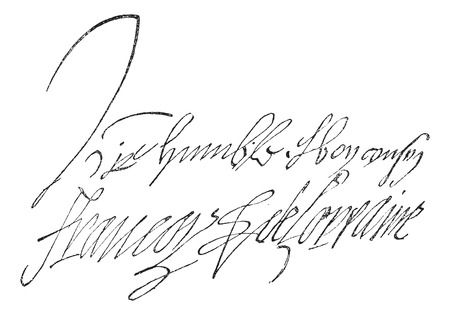 Vre humble & bon cousin
Francoys de Lorraine